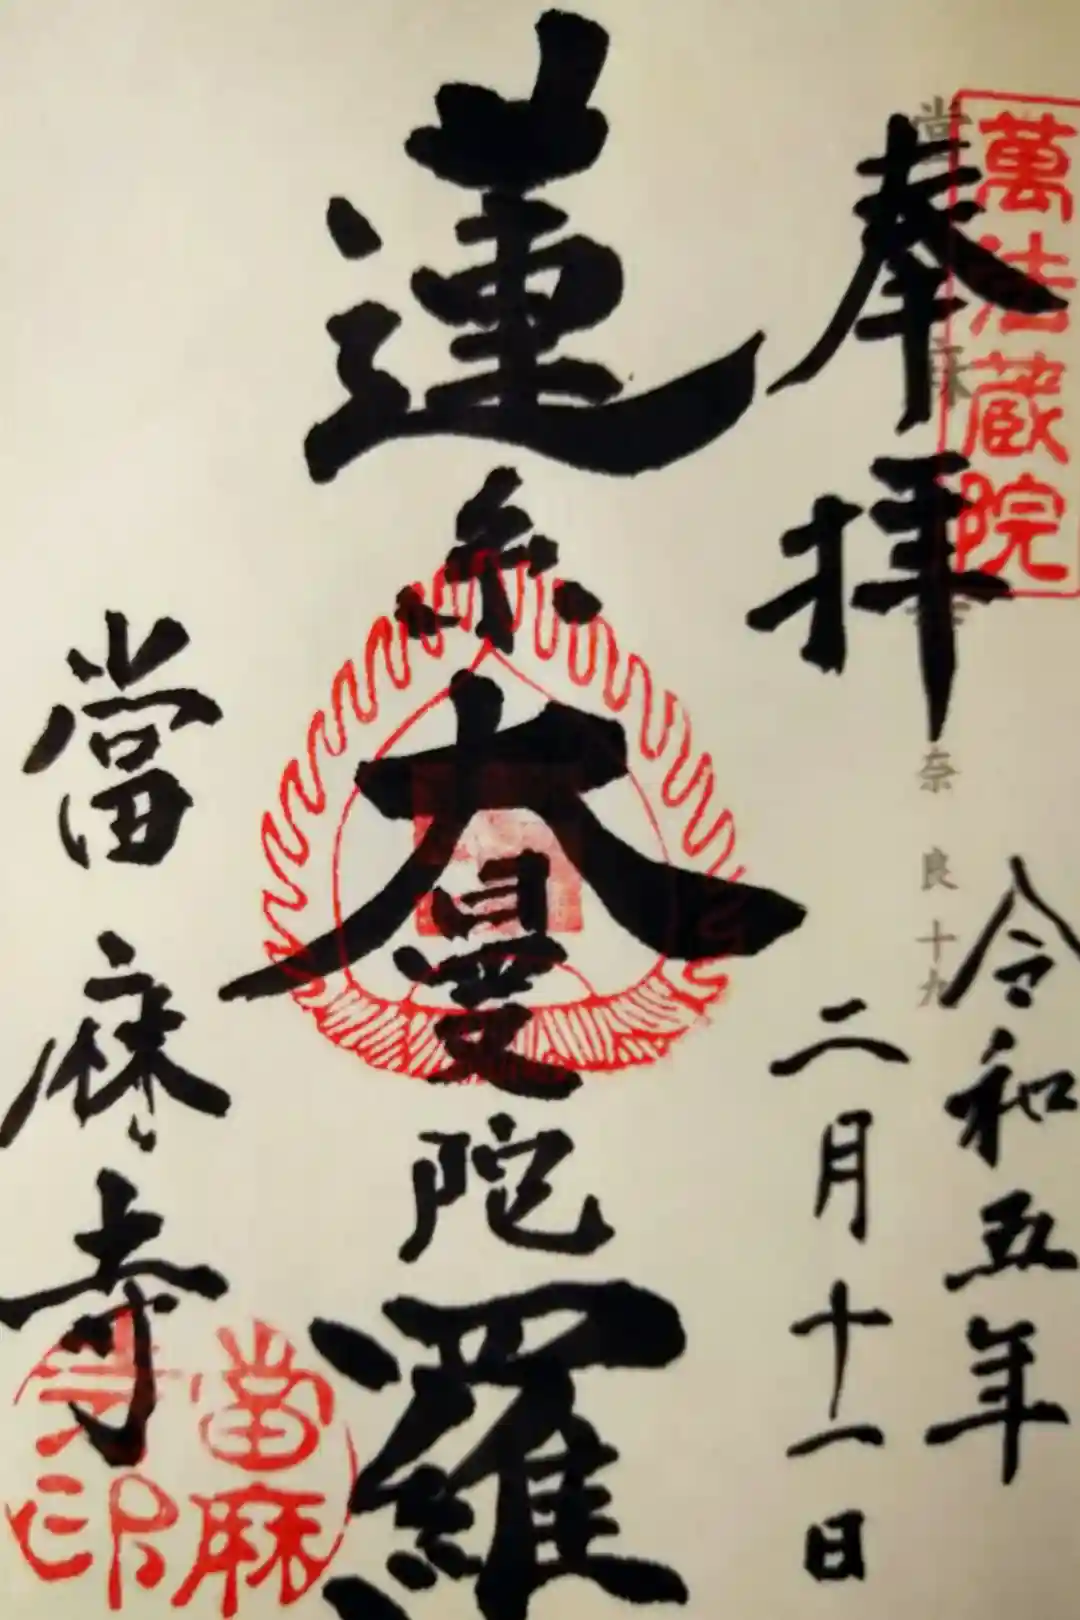 萬法蔵院
奉拝
令和五年
二月十一日
奈良十九
蓮糸大曼陀羅
當麻寺
當麻寺印